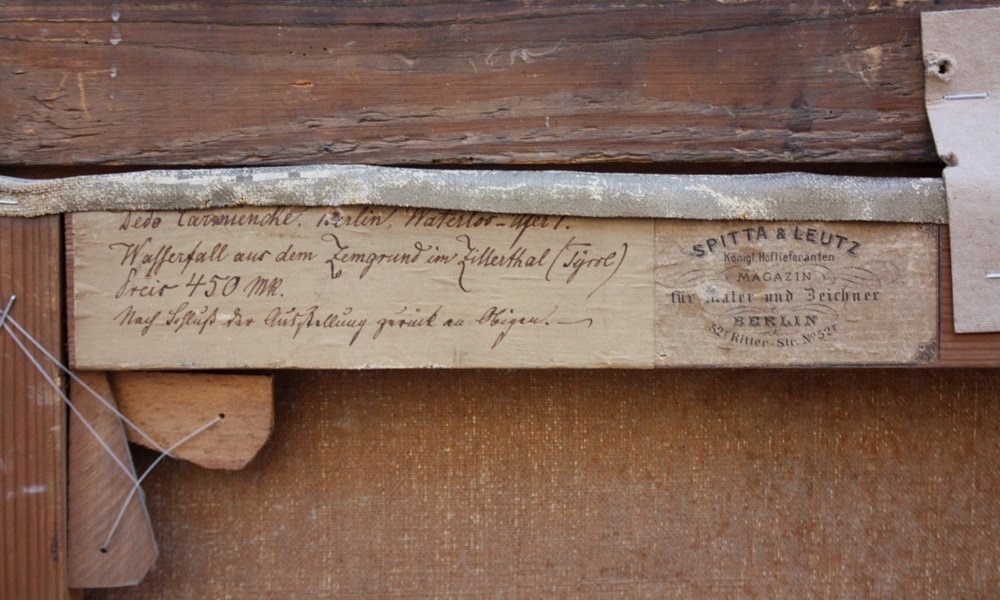 Dedo Carmiencke, Berlin, Waterloo-Ufer 1.
Wasserfall aus dem Zemgrund im Zillerthal (Tyrol)
Preis 450 Mk.
Nach Schluß der Ausstellung zurück an Obigen. —
SPITTA & LEUTZ
Königl. Hoflieferanten
MAGAZIN
für Maler und Zeichner
BERLIN
52r Ritter-Str. No 52r